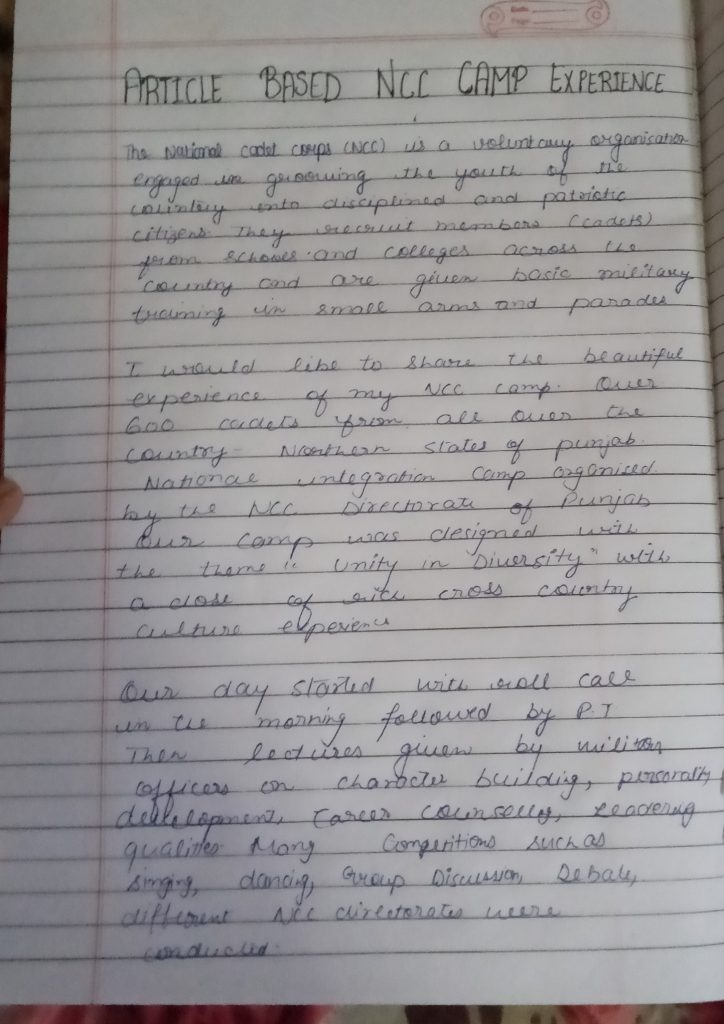 ARTICLE BASED NCC CAMP EXPERIENCE
The National cadet corps (NCC) is a voluntary organisation
engaged in grooming the youth of the
country into disciplined and patriotic
citizens They recruit members (cadets)
from schools and colleges across the
country and are given basic military
training in small arms and parades
I would like to share the beautiful
experience of my NCC camp. Over
600 cadets from all over the
country - Northern states of punjab.
National integration camp organised
by the NCC Directorate of Punjab
Our camp was designed with
the theme "Unity in Diversity" with
a dose of rich cross country
culture experience
Our day started with roll call
in the morning followed by P.T
Then lectures given by military
officers on character building, personality
development, career counselling, Leadering
qualities Many Competitions such as
singing, dancing, Group Discussion, Debate,
different NCC directorates were
conducted.